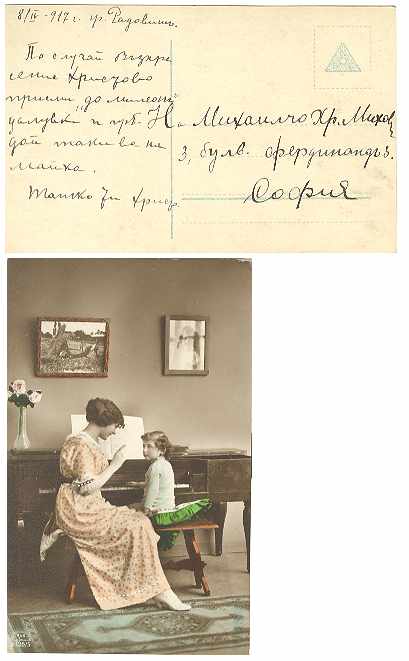 8/II - 917 г. гр. Радовишъ.
По случай Възкре
сение Христово
приеми "до милеон"
цалувки и
дой такива на
майка.
Татко ти Христо
На Михаилчо Хр. Михов
3, булв. Фердинандъ 3.
София